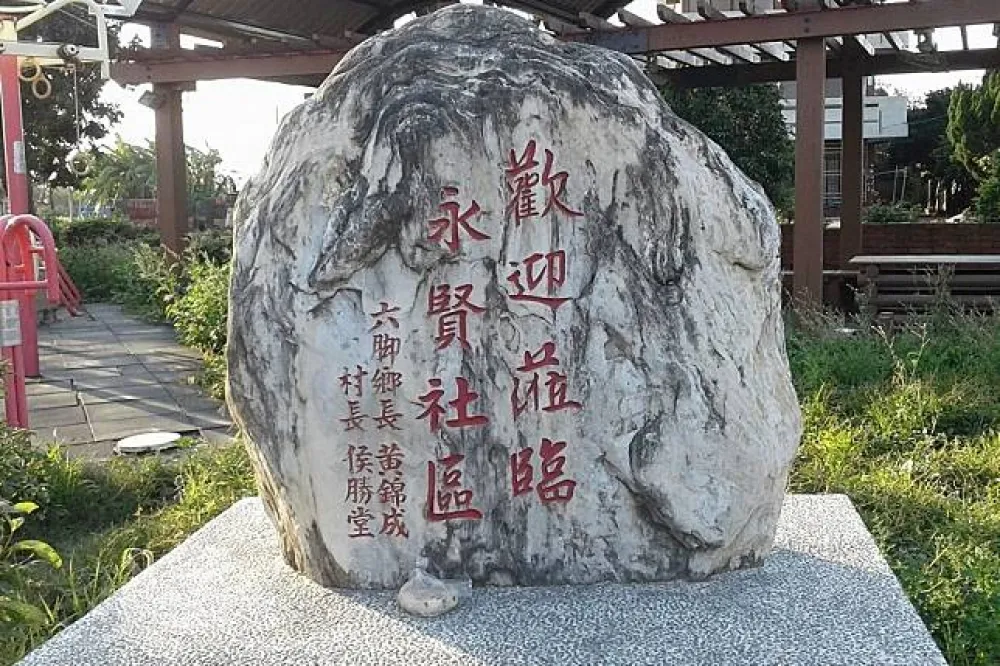 歡迎蒞臨
永賢社區
六脚鄉長 黃錦成
村長 侯勝堂